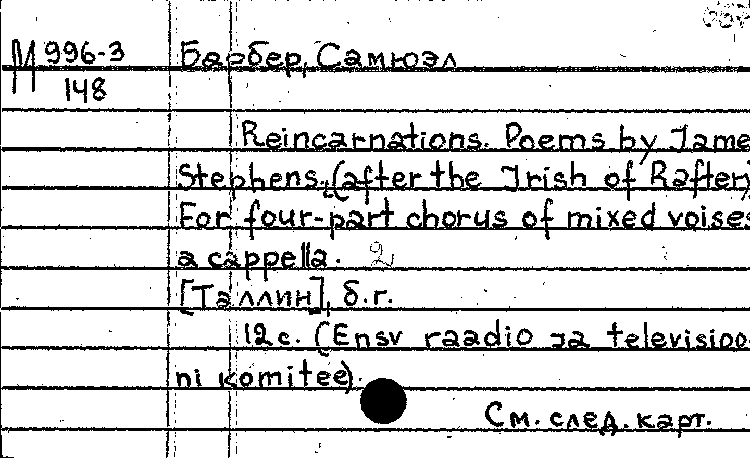 М 996-3 Барбер, Самюэл
148
Reincarnations. Poems by Jame
Stephens, (after the Irish of Rafter)
For four-part chorus of mixed voises
a cappella. 2
[Таллин], б.г.
12 с. (Ensv raadio ja televisioo-
ni komitee).
См. след. карт.